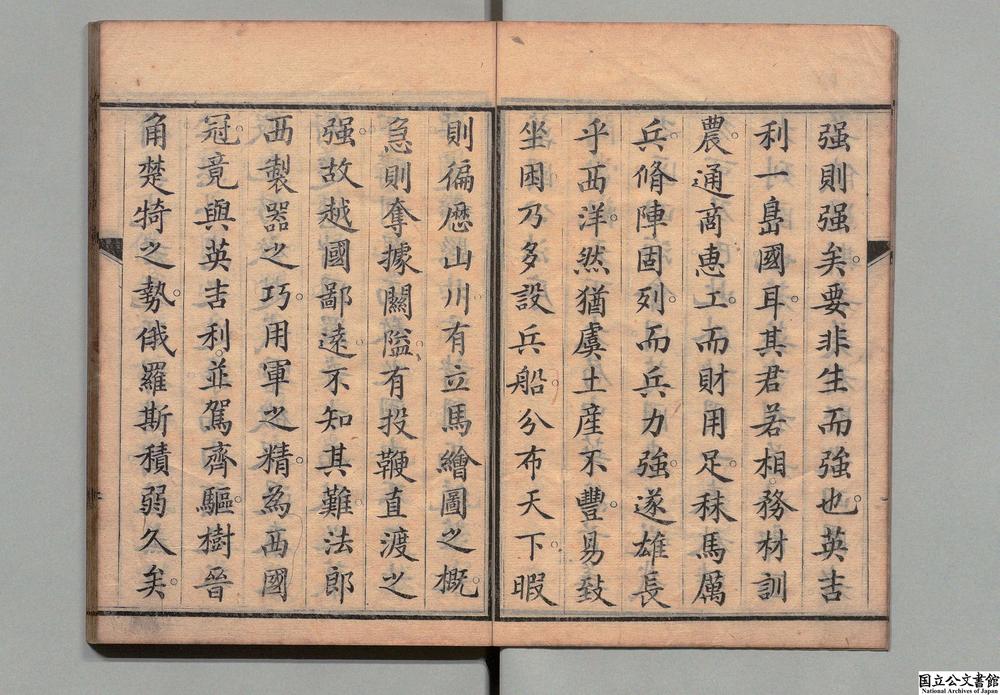 强則强矣。要非生而強也。英吉
利一島國耳。其君若相。務材訓
農。通商惠工。而財用足。秣馬厲
兵。脩陣固列。而兵力強。遂雄長
乎西洋。然猶虞土產不豐。易致
坐困乃多設兵船。分布天下。暇
則徧歷山川。有立馬繪圖之概。
急則奪據關隘。有投鞭直渡之
强。故越國鄙遠。不知其難。法郎
西製器之巧。用軍之精。為西國
冠。竟與英吉利。並駕齊驅。樹晉
角楚犄之勢。俄羅斯積弱久矣。
国立公文書館
National Archives of Japan